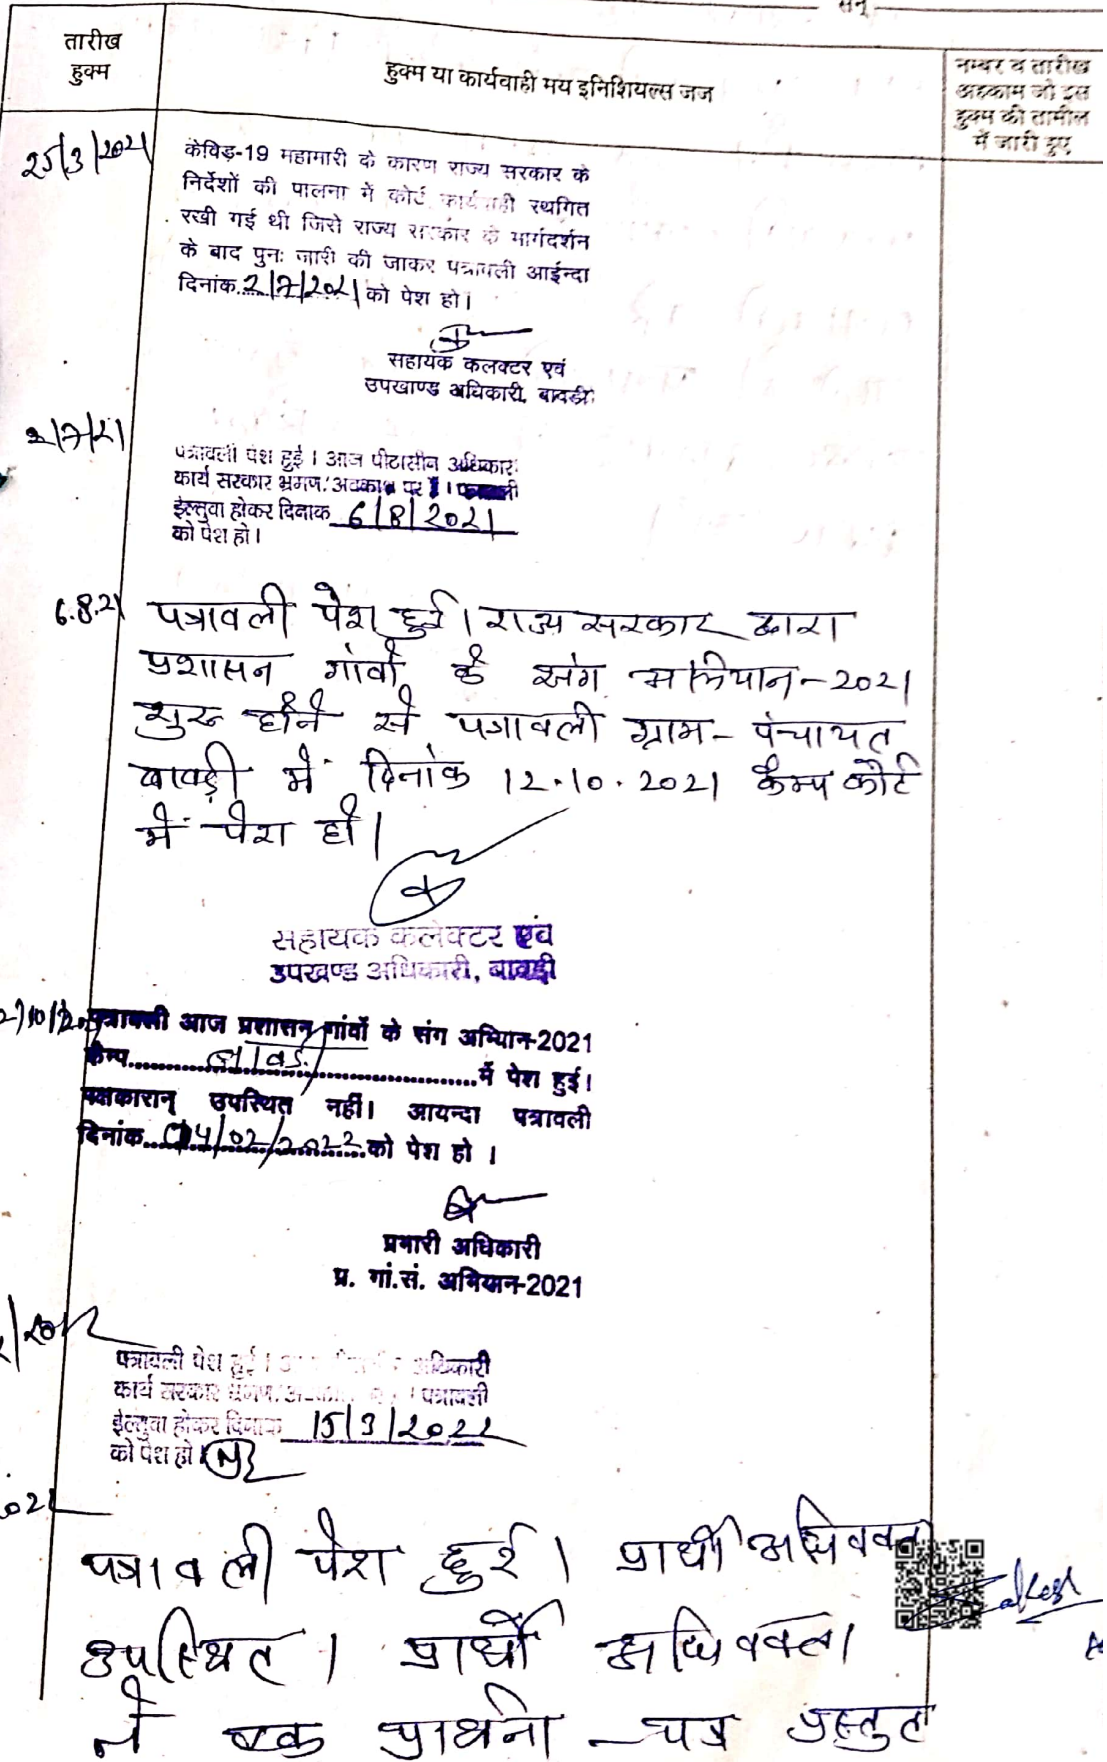 सन्
तारीख
हुक्म
हुक्म या कार्यवाही मय इनिशियल्स जज
नम्बर व तारीख
अहकाम जो इस
हुक्म की तामील
में जारी हुए
25/3/2021
केविड़-19 महामारी के कारण राज्य सरकार के
निर्देशों की पालना में कोर्ट कार्यवाही स्थगित
रखी गई थी जिसे राज्य सरकार के मार्गदर्शन
के बाद पुनः जारी की जाकर पत्रावली आईन्दा
दिनांक 2/7/2021 को पेश हो।
सहायक कलक्टर एवं
उपखाण्ड अधिकारी, बावडी
2/7/21
पत्रावली पेश हुई । आज पीठासीन अधिकारी
कार्य सरकार भ्रमण/अवकाश पर
ईल्तुवा होकर दिनांक 6/8/2021
को पेश हो।
6.8.21
पत्रावली पेश हुई। राज्य सरकार द्वारा
प्रशासन गांवों के संग अभियान-2021
शुरू होने से पत्रावली ग्राम-पंचायत
बावड़ी में दिनांक 12.10.2021 कैम्प कोर्ट
में पेश हो।
सहायक कलेक्टर एवं
उपखण्ड अधिकारी, बावड़ी
पत्रावली आज प्रशासन गांवों के संग अभियान-2021
कैम्प बावड़ी में पेश हुई।
पक्षकारान् उपस्थित नहीं। आयन्दा पत्रावली
दिनांक 04/02/2022 को पेश हो ।
प्रभारी अधिकारी
प्र. गां.सं. अभियान-2021
पत्रावली पेश हुई । अधिकारी
कार्य सरकार भ्रमण पत्रावली
ईल्तुवा होकर दिनांक 15/3/2022
को पेश हो
पत्रावली पेश हुई । प्रार्थी अधिवक्ता
उपस्थित । प्रार्थी अधिवक्ता
ने एक प्रार्थना-पत्र प्रस्तुत